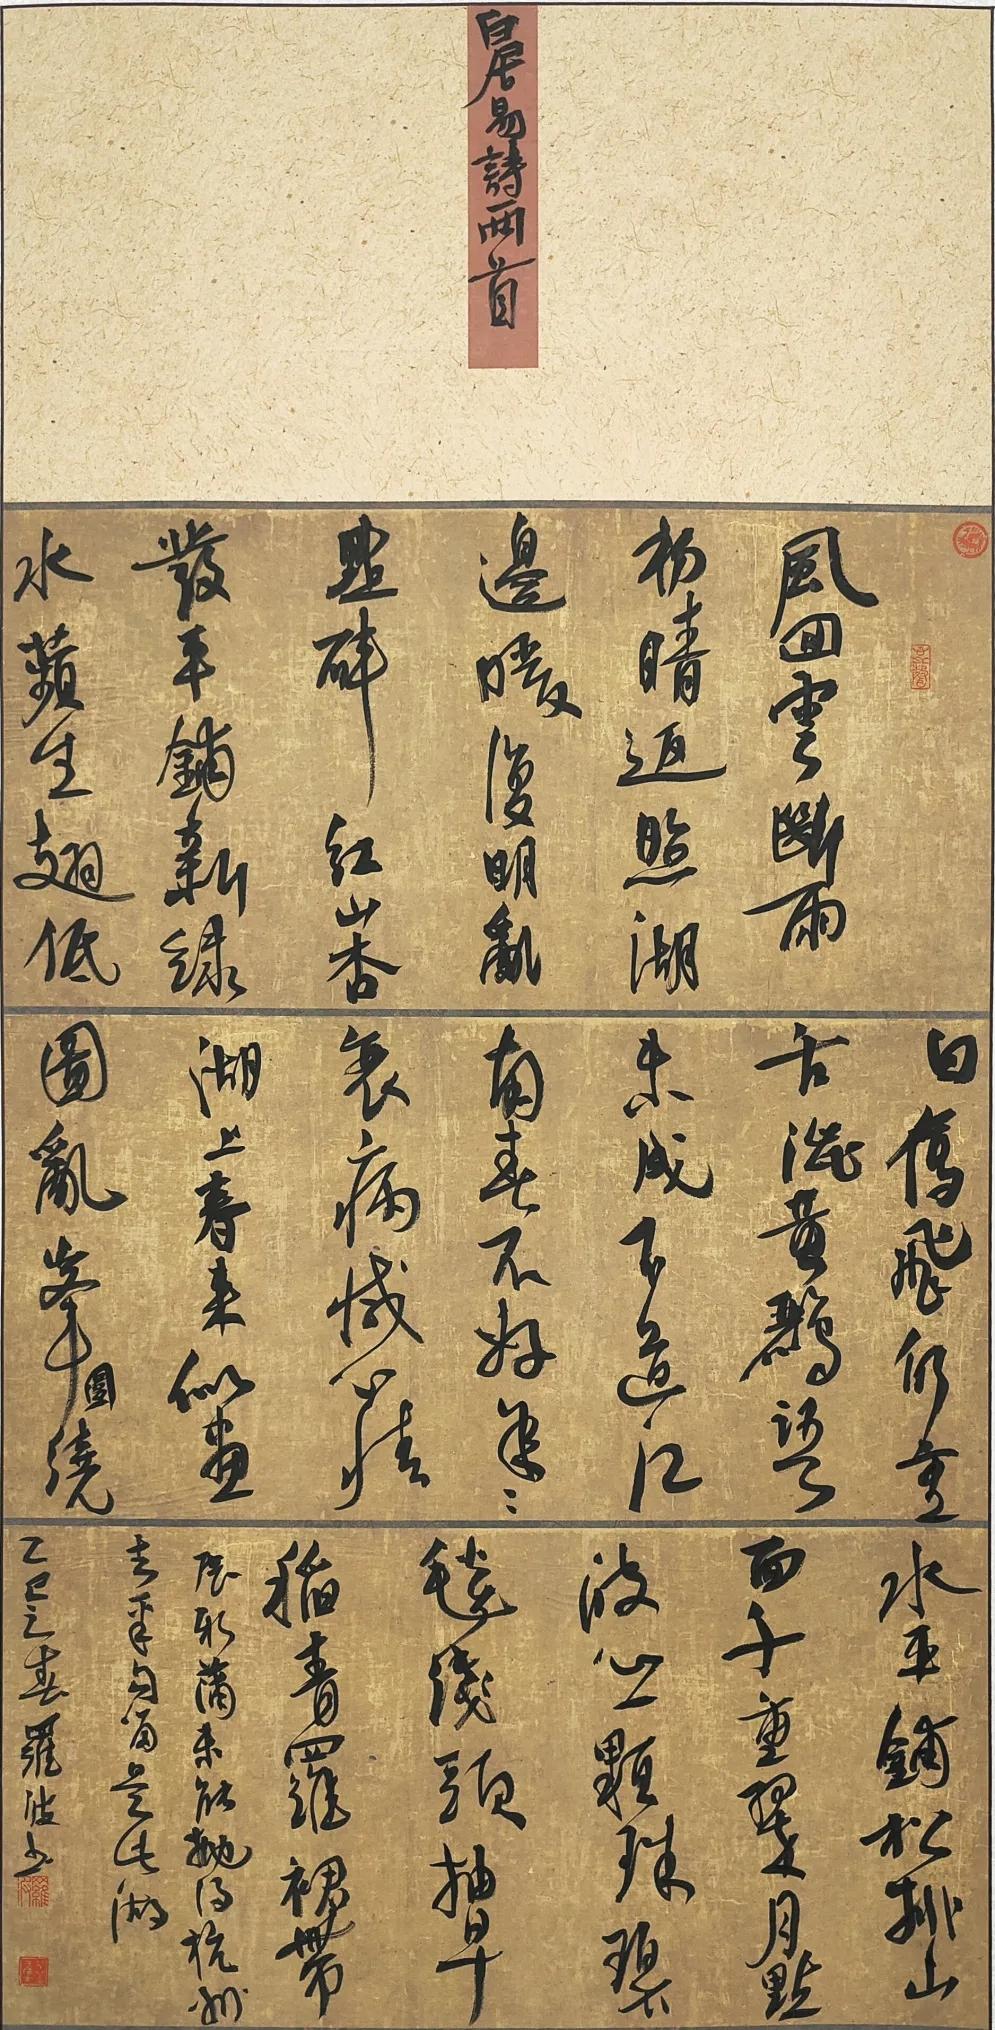 白居易詩兩首
風回雲斷雨
初晴返照湖
邊暖復明亂
點碎紅山杏
發平鋪新綠
水蘋生翅低
白雁飛仍重
舌澀黄鸝語
未成不道江
南春不好年〻
衰病減心情
湖上春来似畫
圖亂峯圍繞
水平鋪松排山
面千重翠月點
波心一顆珠碧
毯綫頭抽早
稻青羅裙帶
展新蒲未能抛得杭州
去半勾留是此湖
乙巳之春羅波書